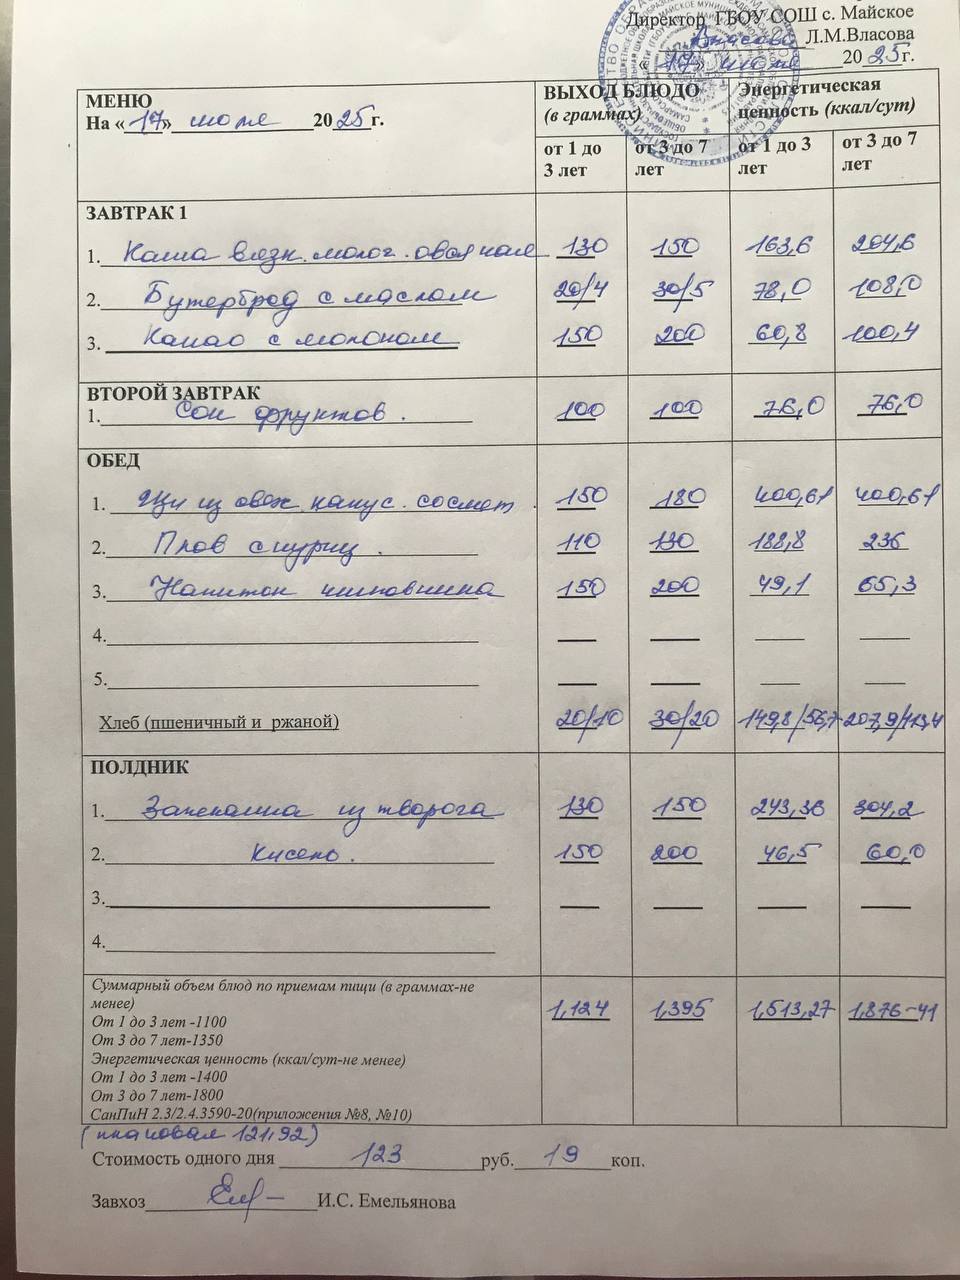 Директор ГБОУ СОШ с. Майское
Л.М.Власова
«17» 2025г.
МЕНЮ
На «17» 2025г.
ВЫХОД БЛЮДО
(в граммах)
Энергетическая
ценность (ккал/сут)
от 1 до 3 лет от 3 до 7 лет от 1 до 3 лет от 3 до 7 лет
ЗАВТРАК 1
1. Каша вязк. молоч. овсяная 130 150 163,6 204,6
2. Бутерброд с маслом 20/4 30/5 78,0 108,0
3. Какао с молоком 150 200 60,8 100,4
ВТОРОЙ ЗАВТРАК
1. Сок фруктов. 100 100 76,0 76,0
ОБЕД
1. Щи из свеж. капус. со смет. 150 180 400,61 400,61
2. Плов с куриц. 110 130 188,8 236
3. Напиток шиповника 150 200 49,1 65,3
4.
5.
Хлеб (пшеничный и ржаной) 20/10 30/20 149,8/56,7 207,9/113,4
ПОЛДНИК
1. Запеканка из творога 130 150 243,36 304,2
2. Кисель. 150 200 46,5 60,0
3.
4.
Суммарный объем блюд по приемам пищи (в граммах-не
менее)
От 1 до 3 лет -1100
1,124 1,395 1,513,27 1,876-41
От 3 до 7 лет-1350
Энергетическая ценность (ккал/сут-не менее)
От 1 до 3 лет -1400
От 3 до 7 лет-1800
СанПиН 2.3/2.4.3590-20(приложения №8, №10)
(плановая 121,92)
Стоимость одного дня 123 руб. 19 коп.
Завхоз И.С. Емельянова